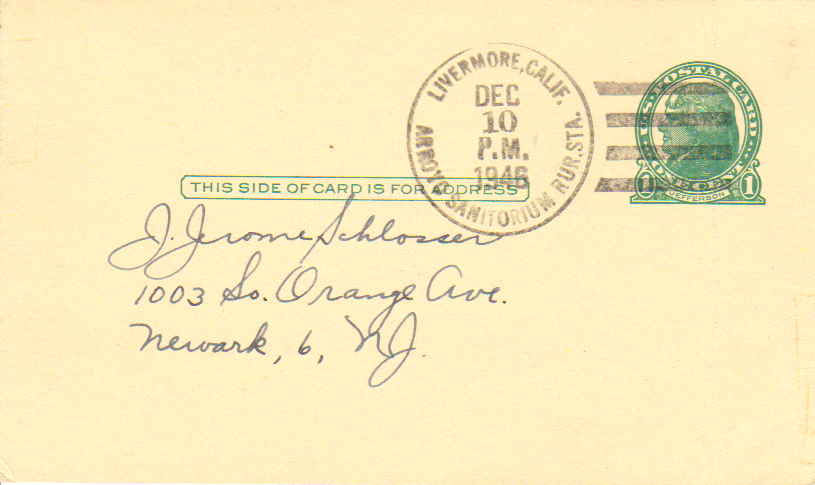 LIVERMORE, CALIF.
DEC
10
P.M.
1946
ARROYO SANITORIUM RUR. STA.
U.S. POSTAL CARD
1 ONE CENT 1
JEFFERSON
THIS SIDE OF CARD IS FOR ADDRESS
J. Jerome Schlosser
1003 So. Orange Ave.
Newark, 6, N.J.